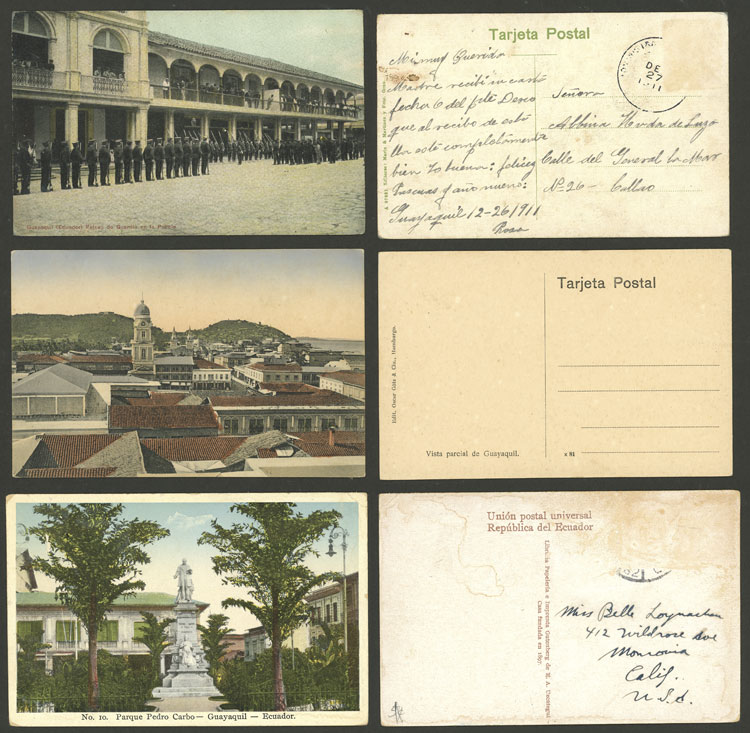 Guayaquil (Ecuador)
Tarjeta Postal
Mi muy Querida
Madre recibí tu carta
fecha 6 del pte Deseo
que al recibo de esta
Ud esté completamente
bien
felices
Pascuas y año nuevo:
Guayaquil 12-26/1911
Rosa
DE
27
1911
Señora
Albina
Calle del General La Mar
Nº 26 – Callao
Tarjeta Postal
Edit. Oscar
& Co., Hamburgo.
Vista parcial de Guayaquil.
x 81
No. 10. Parque Pedro Carbo— Guayaquil — Ecuador.
Unión postal universal
República del Ecuador
Librería Papelería e Imprenta Gutenberg de E. A. Uzcategui
Casa fundada en 1897.
Miss Belle
412 Wildrose Ave
Monrovia
Calif.
U.S.A.